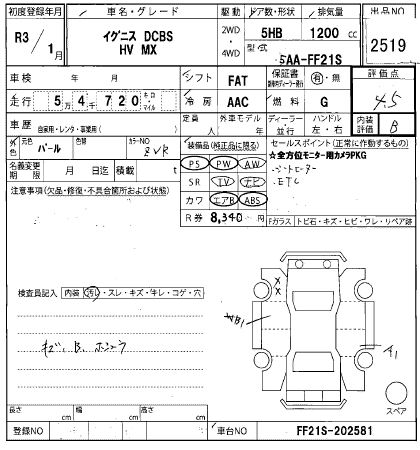 初度登録年月 車名・グレード 駆動 ドア数・形状 排気量 出品NO
R3/1月 イグニス DCBS HV MX 2WD・4WD 5HB 1200cc 2519
型式 5AA-FF21S
車検 年 月 シフト FAT 保証書 有・無 評価点
走行 5万4千720キロ・マイル 冷房 AAC 燃料 G 4.5
車歴 自家用・レンタ・事業用( ) 定員 人 外車モデル 年 ディーラー・並行 ハンドル 左・右 内装評価 B
外色 元色 パール 色替 カラーNO ZVR
装備品(純正品に限る) セールスポイント(正常に作動するもの)
PS PW AW ☆全方位モニター用カメラPKG
名義変更期限 月 日迄 積載 t SR TV ナビ ・シートヒーター
注意事項(欠品・修復・不具合箇所および状態) カワ エアB ABS ・ETC
R券 8,340円 Fガラス トビ石・キズ・ヒビ・ワレ・リペア跡
検査員記入 内装 汚れ・スレ・キズ・キレ・コゲ・穴
B1
A1
キズ、B、
スペア
長さ cm 幅 cm 高さ cm
登録NO 車台NO FF21S-202581